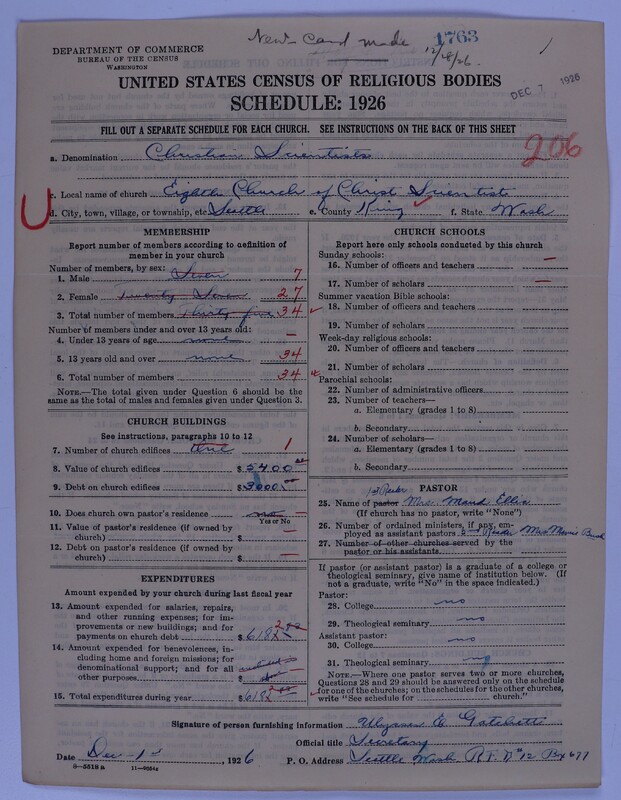 New Card made 1763
12/18/26.
DEPARTMENT OF COMMERCE
BUREAU OF THE CENSUS
WASHINGTON
UNITED STATES CENSUS OF RELIGIOUS BODIES
DEC 7 1926
SCHEDULE: 1926
FILL OUT A SEPARATE SCHEDULE FOR EACH CHURCH. SEE INSTRUCTIONS ON THE BACK OF THIS SHEET
206
a. Denomination Christian Scientists
c. Local name of church Eighth Church of Christ Scientist
U
d. City, town, village, or township, etc. Seattle e. County King f. State Wash
MEMBERSHIP
Report number of members according to definition of
member in your church
Number of members, by sex:
1. Male Seven 7
2. Female Twenty Seven 27
3. Total number of members Thirty five 34
Number of members under and over 13 years old:
4. Under 13 years of age none –
5. 13 years old and over none 34
6. Total number of members 34
NOTE.—The total given under Question 6 should be
same as the total of males and females given under Question 3.
CHURCH BUILDINGS
See instructions, paragraphs 10 to 12
7. Number of church edifices one 1
8. Value of church edifices $5400
9. Debt on church edifices $3000
10. Does church own pastor's residence? no
Yes or No
11. Value of pastor's residence (if owned by
church) $ –
12. Debt on pastor's residence (if owned by
church) $ –
EXPENDITURES
Amount expended by your church during last fiscal year
13. Amount expended for salaries, repairs,
and other running expenses; for im-
provements or new buildings; and for
payments on church debt $
14. Amount expended for benevolences,
including home and foreign missions; for
denominational support; and for all
other purposes $
15. Total expenditures during year $
CHURCH SCHOOLS
Report here only schools conducted by this church
Sunday schools:
16. Number of officers and teachers –
17. Number of scholars –
Summer vacation Bible schools:
18. Number of officers and teachers
19. Number of scholars
Week-day religious schools:
20. Number of officers and teachers
21. Number of scholars
Parochial schools:
22. Number of administrative officers
23. Number of teachers—
a. Elementary (grades 1 to 8)
b. Secondary
24. Number of scholars—
a. Elementary (grades 1 to 8)
b. Secondary
PASTOR
1st Reader
25. Name of pastor Mrs. Maud Ellis
(If church has no pastor, write "None")
26. Number of ordained ministers, if any, em-
ployed as assistant pastors 2nd Reader Mrs
27. Number of other churches served by the
pastor or his assistants
If pastor (or assistant pastor) is a graduate of a college or
theological seminary, give name of institution below. (If
not a graduate, write "No" in the space indicated.)
Pastor:
28. College no
29. Theological seminary no
Assistant pastor:
30. College no
31. Theological seminary no
NOTE.—Where one pastor serves two or more churches,
Questions 28 and 29 should be answered only on the schedule
for one of the churches; on the schedules for the other churches,
write "See schedule for church."
Signature of person furnishing information
Official title Secretary
Date Dec 1st, 1926 P. O. Address Seattle Wash R.F.D #12 Box 677
8—5518 a